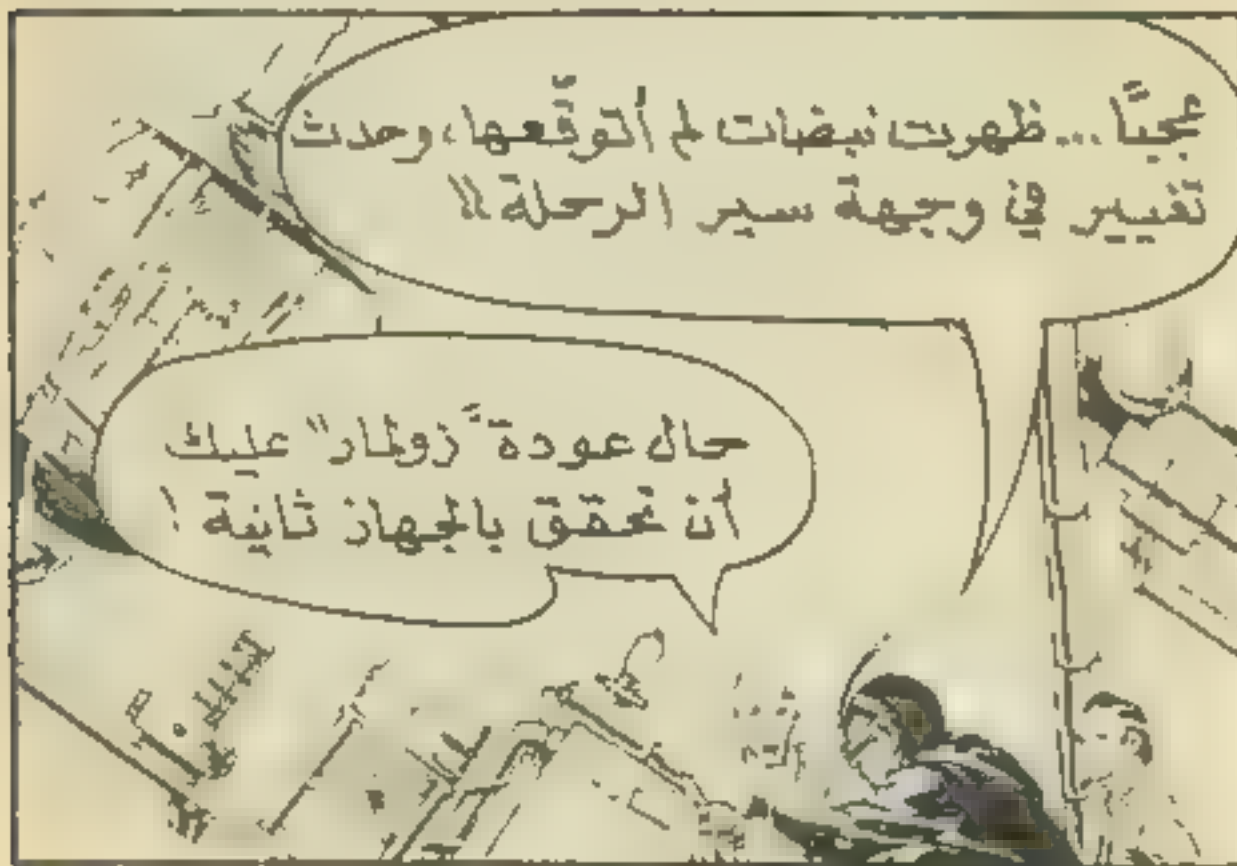 عجبًا... ظهرت نبضات لم أتوقّعها، وحدث
تغيير في وجهة سير الرحلة!!
حال عودة "زولمار" عليك
أن تحقق بالجهاز ثانية!